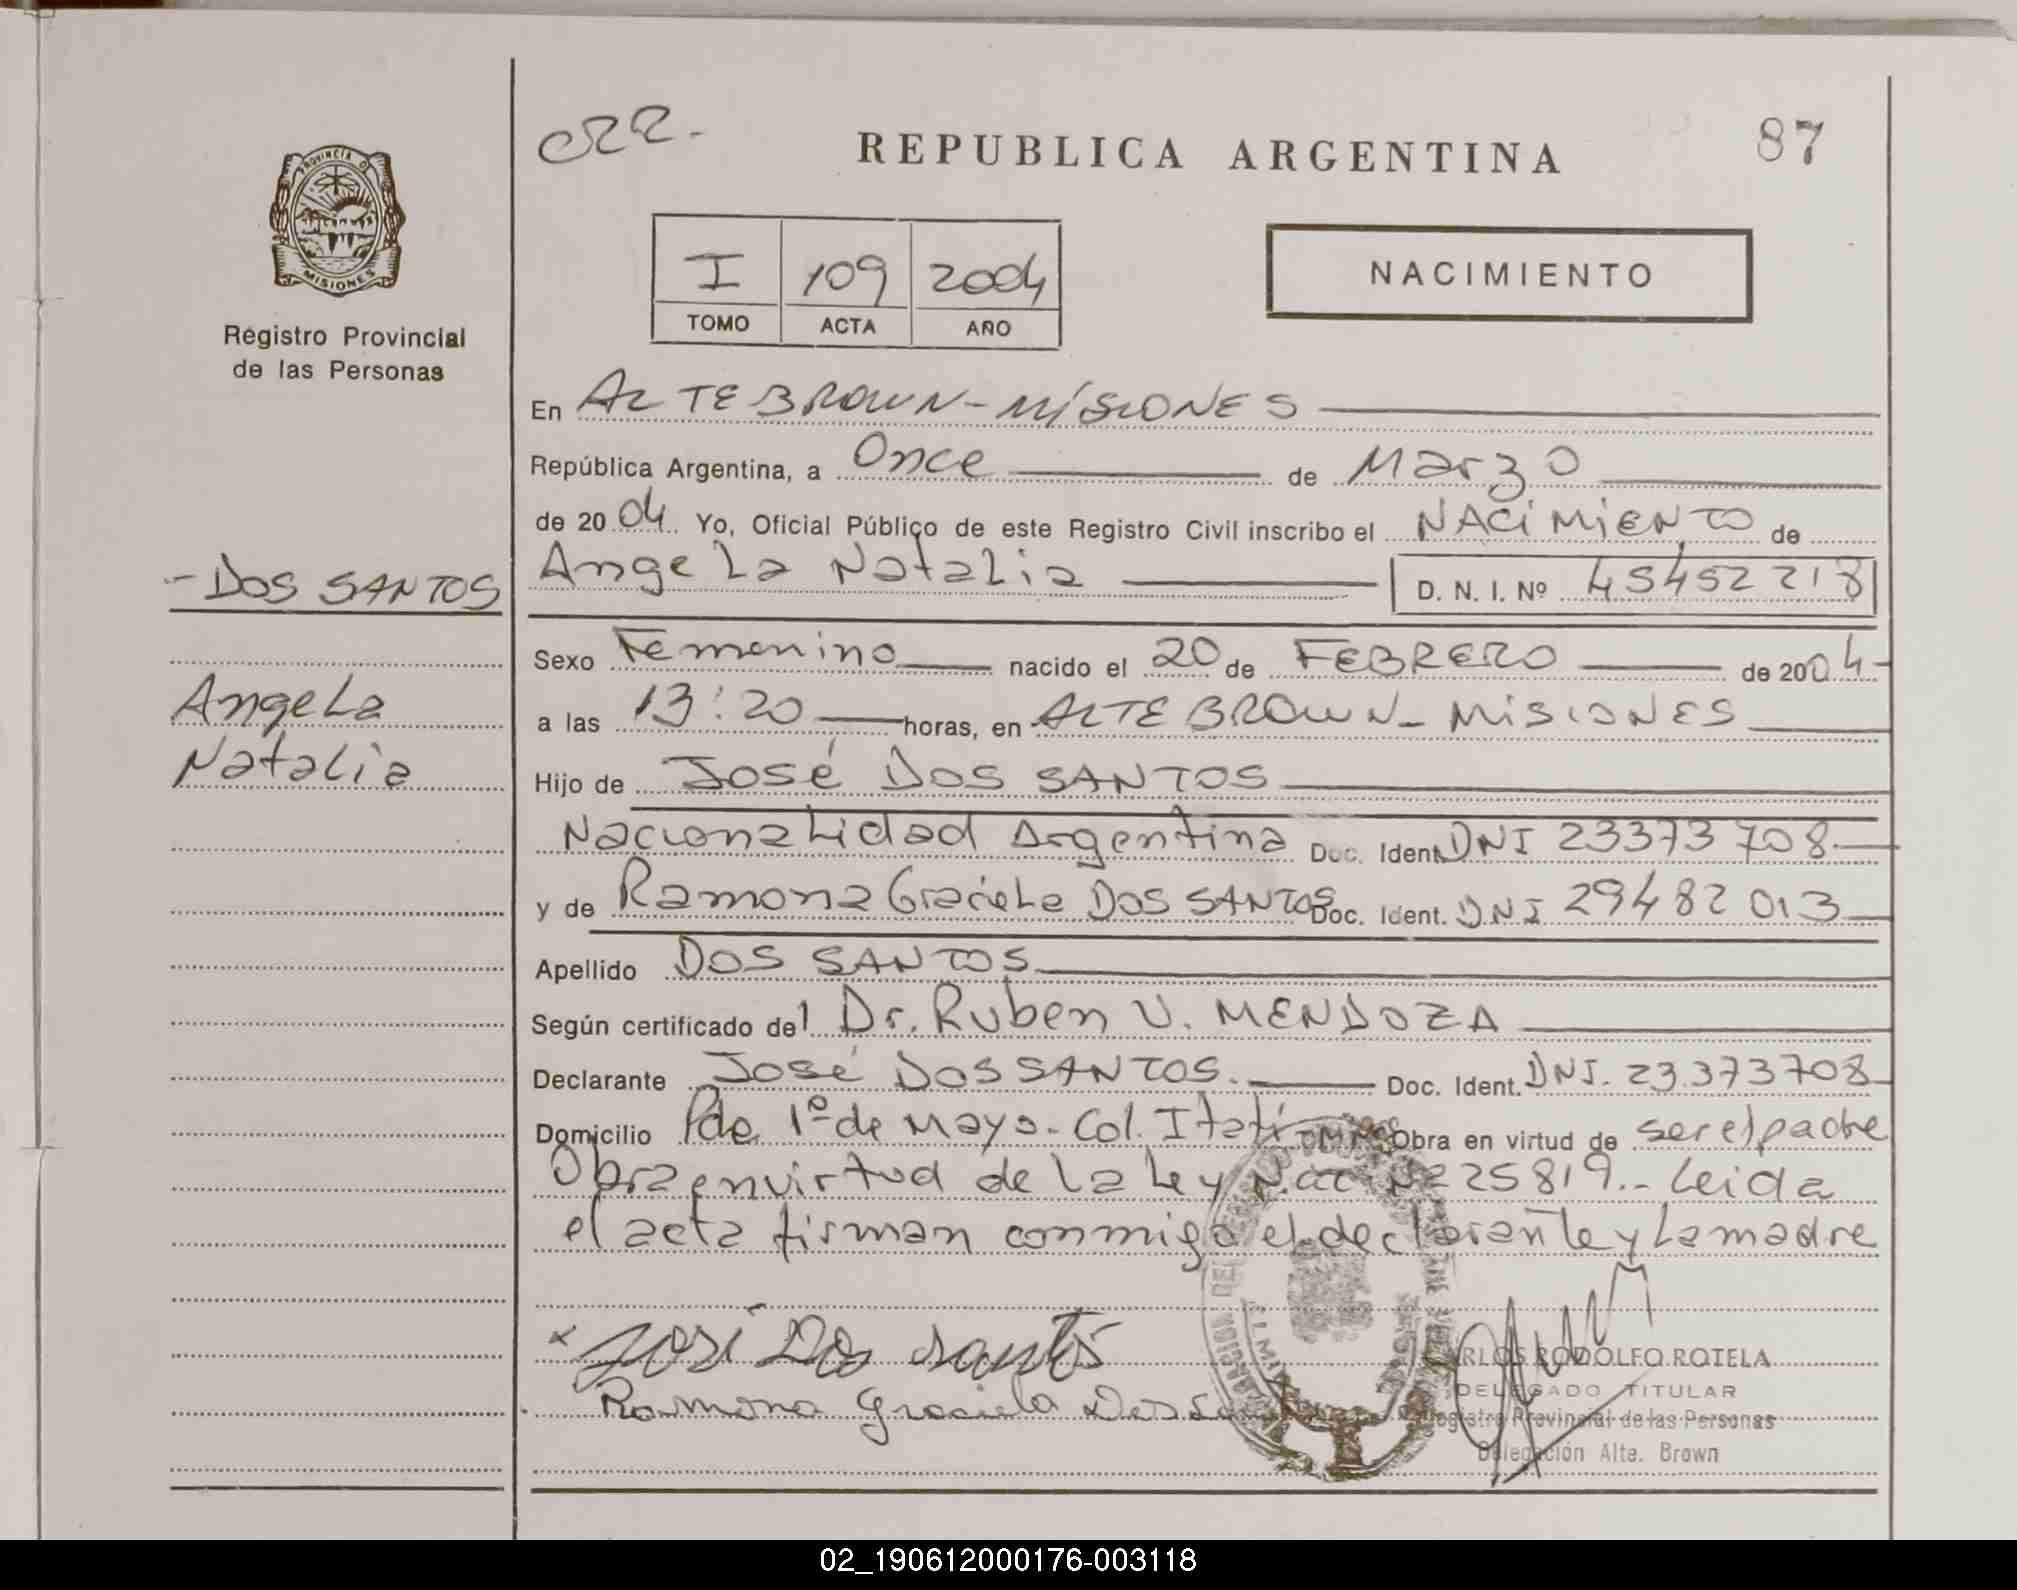 022.
REPUBLICA ARGENTINA
87
PROVINCIA D
MISIONES
Registro Provincial
de las Personas
I 109 2004
TOMO ACTA AÑO
NACIMIENTO
En ALTE BROWN - MISIONES
República Argentina, a Once de Marzo
de 2004 Yo, Oficial Público de este Registro Civil inscribo el NACIMIENTO de
- DOS SANTOS
Angela Natalia
D. N. I. Nº 45452218
Sexo Femenino nacido el 20 de FEBRERO de 2004
Angela
Natalia
a las 13:20 horas, en ALTE BROWN - MISIONES
Hijo de José DOS SANTOS
Nacionalidad Argentina Doc. Ident. DNI 23373708
y de Ramona Graciela DOS SANTOS Doc. Ident. DNI 29482013
Apellido DOS SANTOS
Según certificado del Dr. Ruben U. MENDOZA
Declarante José DOS SANTOS. Doc. Ident. DNI. 23.373708
Domicilio Pde. 1º de Mayo - Col. Itatí Obra en virtud de ser el padre
Obra en virtud de la Ley Nac Nº 25819.- Leida
el acta firman conmigo el declarante y la madre
x José Dos Santos
Ramona Graciela Dos
RLOS RODOLFO ROTELA
DELEGADO TITULAR
Registro Provincial de las Personas
Delegación Alte. Brown
02_190612000176-003118